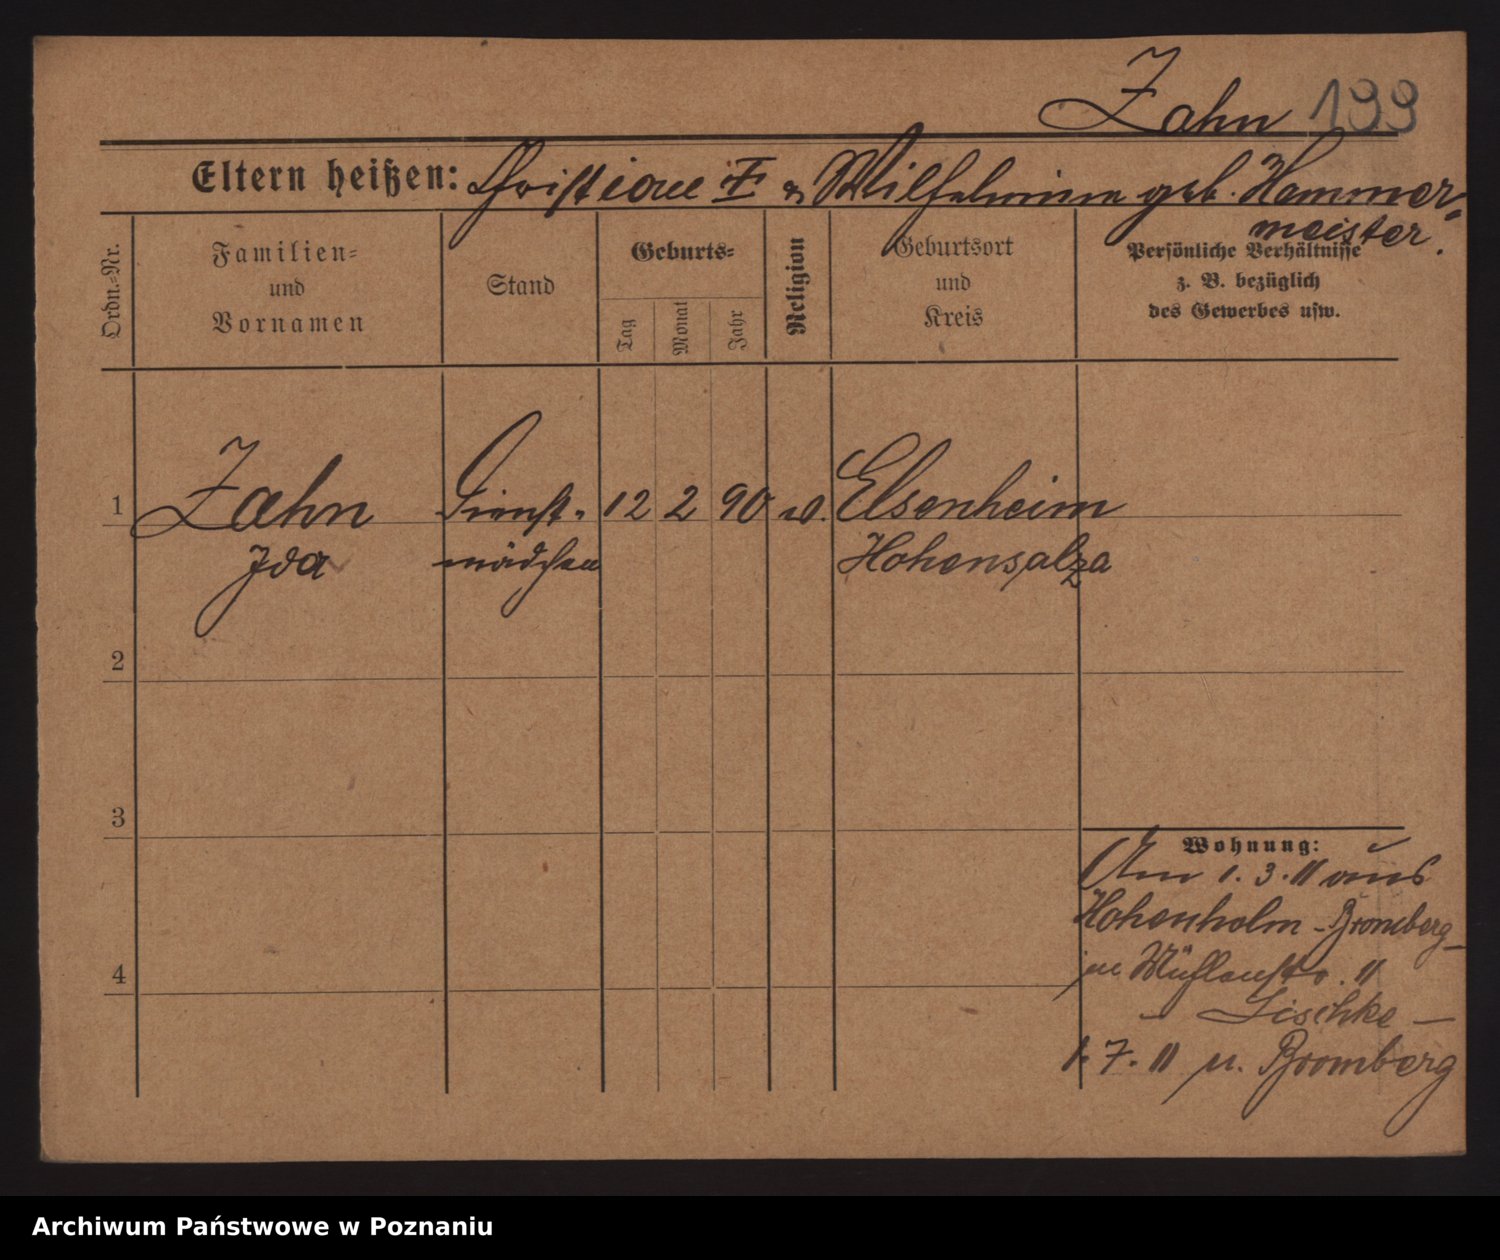 Zahn 199
Eltern heißen: Christian † u Wilhelmine geb. Hammer-
meister.
Ordn.=Nr.
Familien=
und
Vornamen
Stand
Geburts=
Tag
Monat
Jahr
Religion
Geburtsort
und
Kreis
Persönliche Verhältnisse
z. B. bezüglich
des Gewerbes usw.
1 Zahn Dienst- 12 2 90 Elsenheim
Ida mädchen Hohensalza
2
3
4
Wohnung:
Am 1. 3. 11 aus
Hohenholm - Bromberg -
Mühlenstr. 11
- Lischke -
1. 7. 11 n. Bromberg
Archiwum Państwowe w Poznaniu